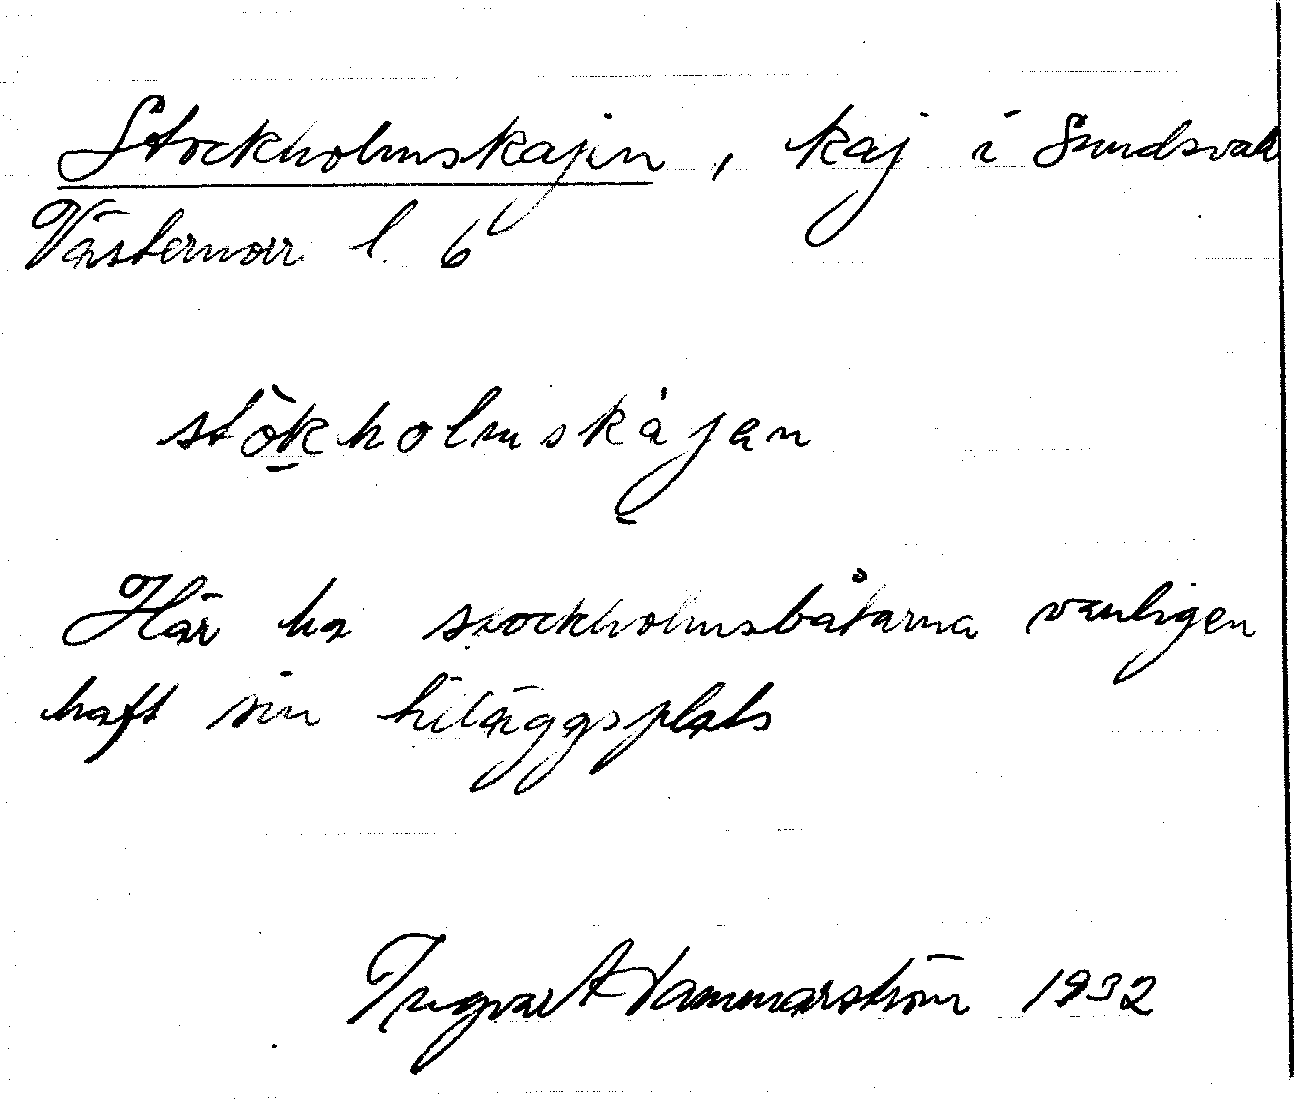 Stockholmskajen, kaj i Sundsvall
Västernorr. l. 6
stòkholmskàjan
Här ha stockholmsbåtarna vanligen
haft sin tilläggsplats
Ingvar Hammarström 1932